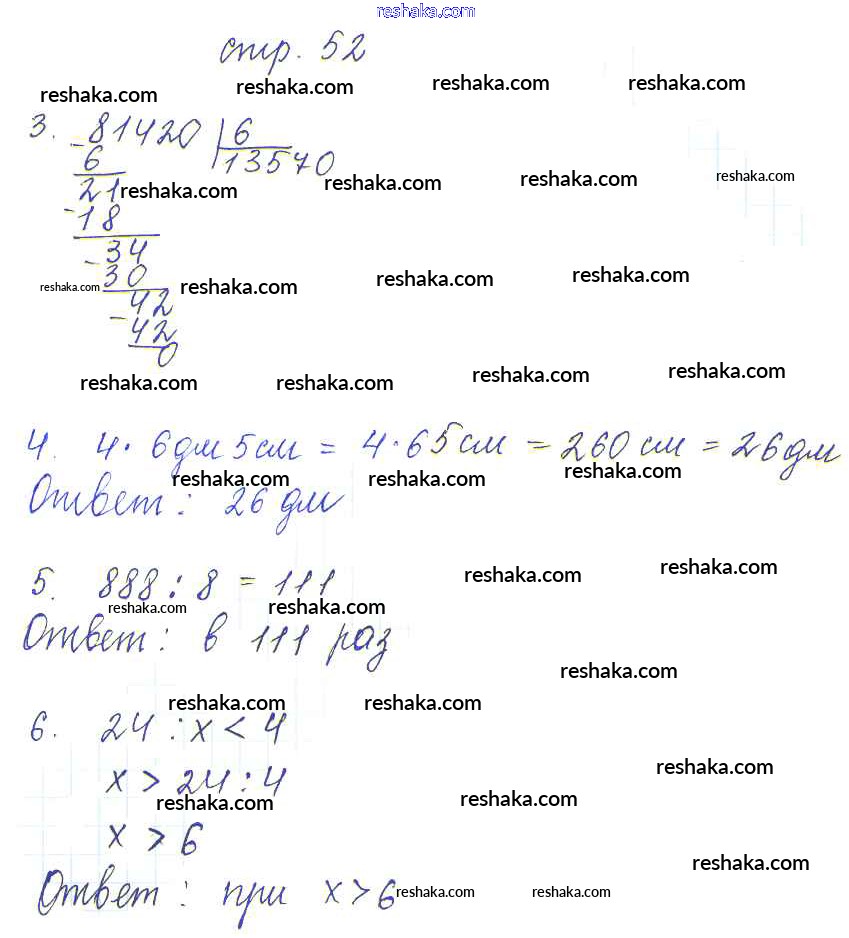 reshaka.com
стр. 52
reshaka.com reshaka.com reshaka.com reshaka.com
3. - 81420 | 6
6 13570
21 reshaka.com reshaka.com reshaka.com reshaka.com
- 18
- 34
reshaka.com 30 reshaka.com reshaka.com reshaka.com
- 42
42
0
reshaka.com reshaka.com reshaka.com reshaka.com
4. 4 · 6дм 5см = 4 · 65см = 260 см = 26дм
reshaka.com reshaka.com reshaka.com
Ответ: 26 дм
5. 888 : 8 = 111 reshaka.com reshaka.com
reshaka.com reshaka.com
Ответ: в 111 раз
reshaka.com
reshaka.com reshaka.com
6. 24 : x < 4
x > 24 : 4 reshaka.com
reshaka.com reshaka.com
x > 6
reshaka.com
Ответ: при x > 6 reshaka.com reshaka.com